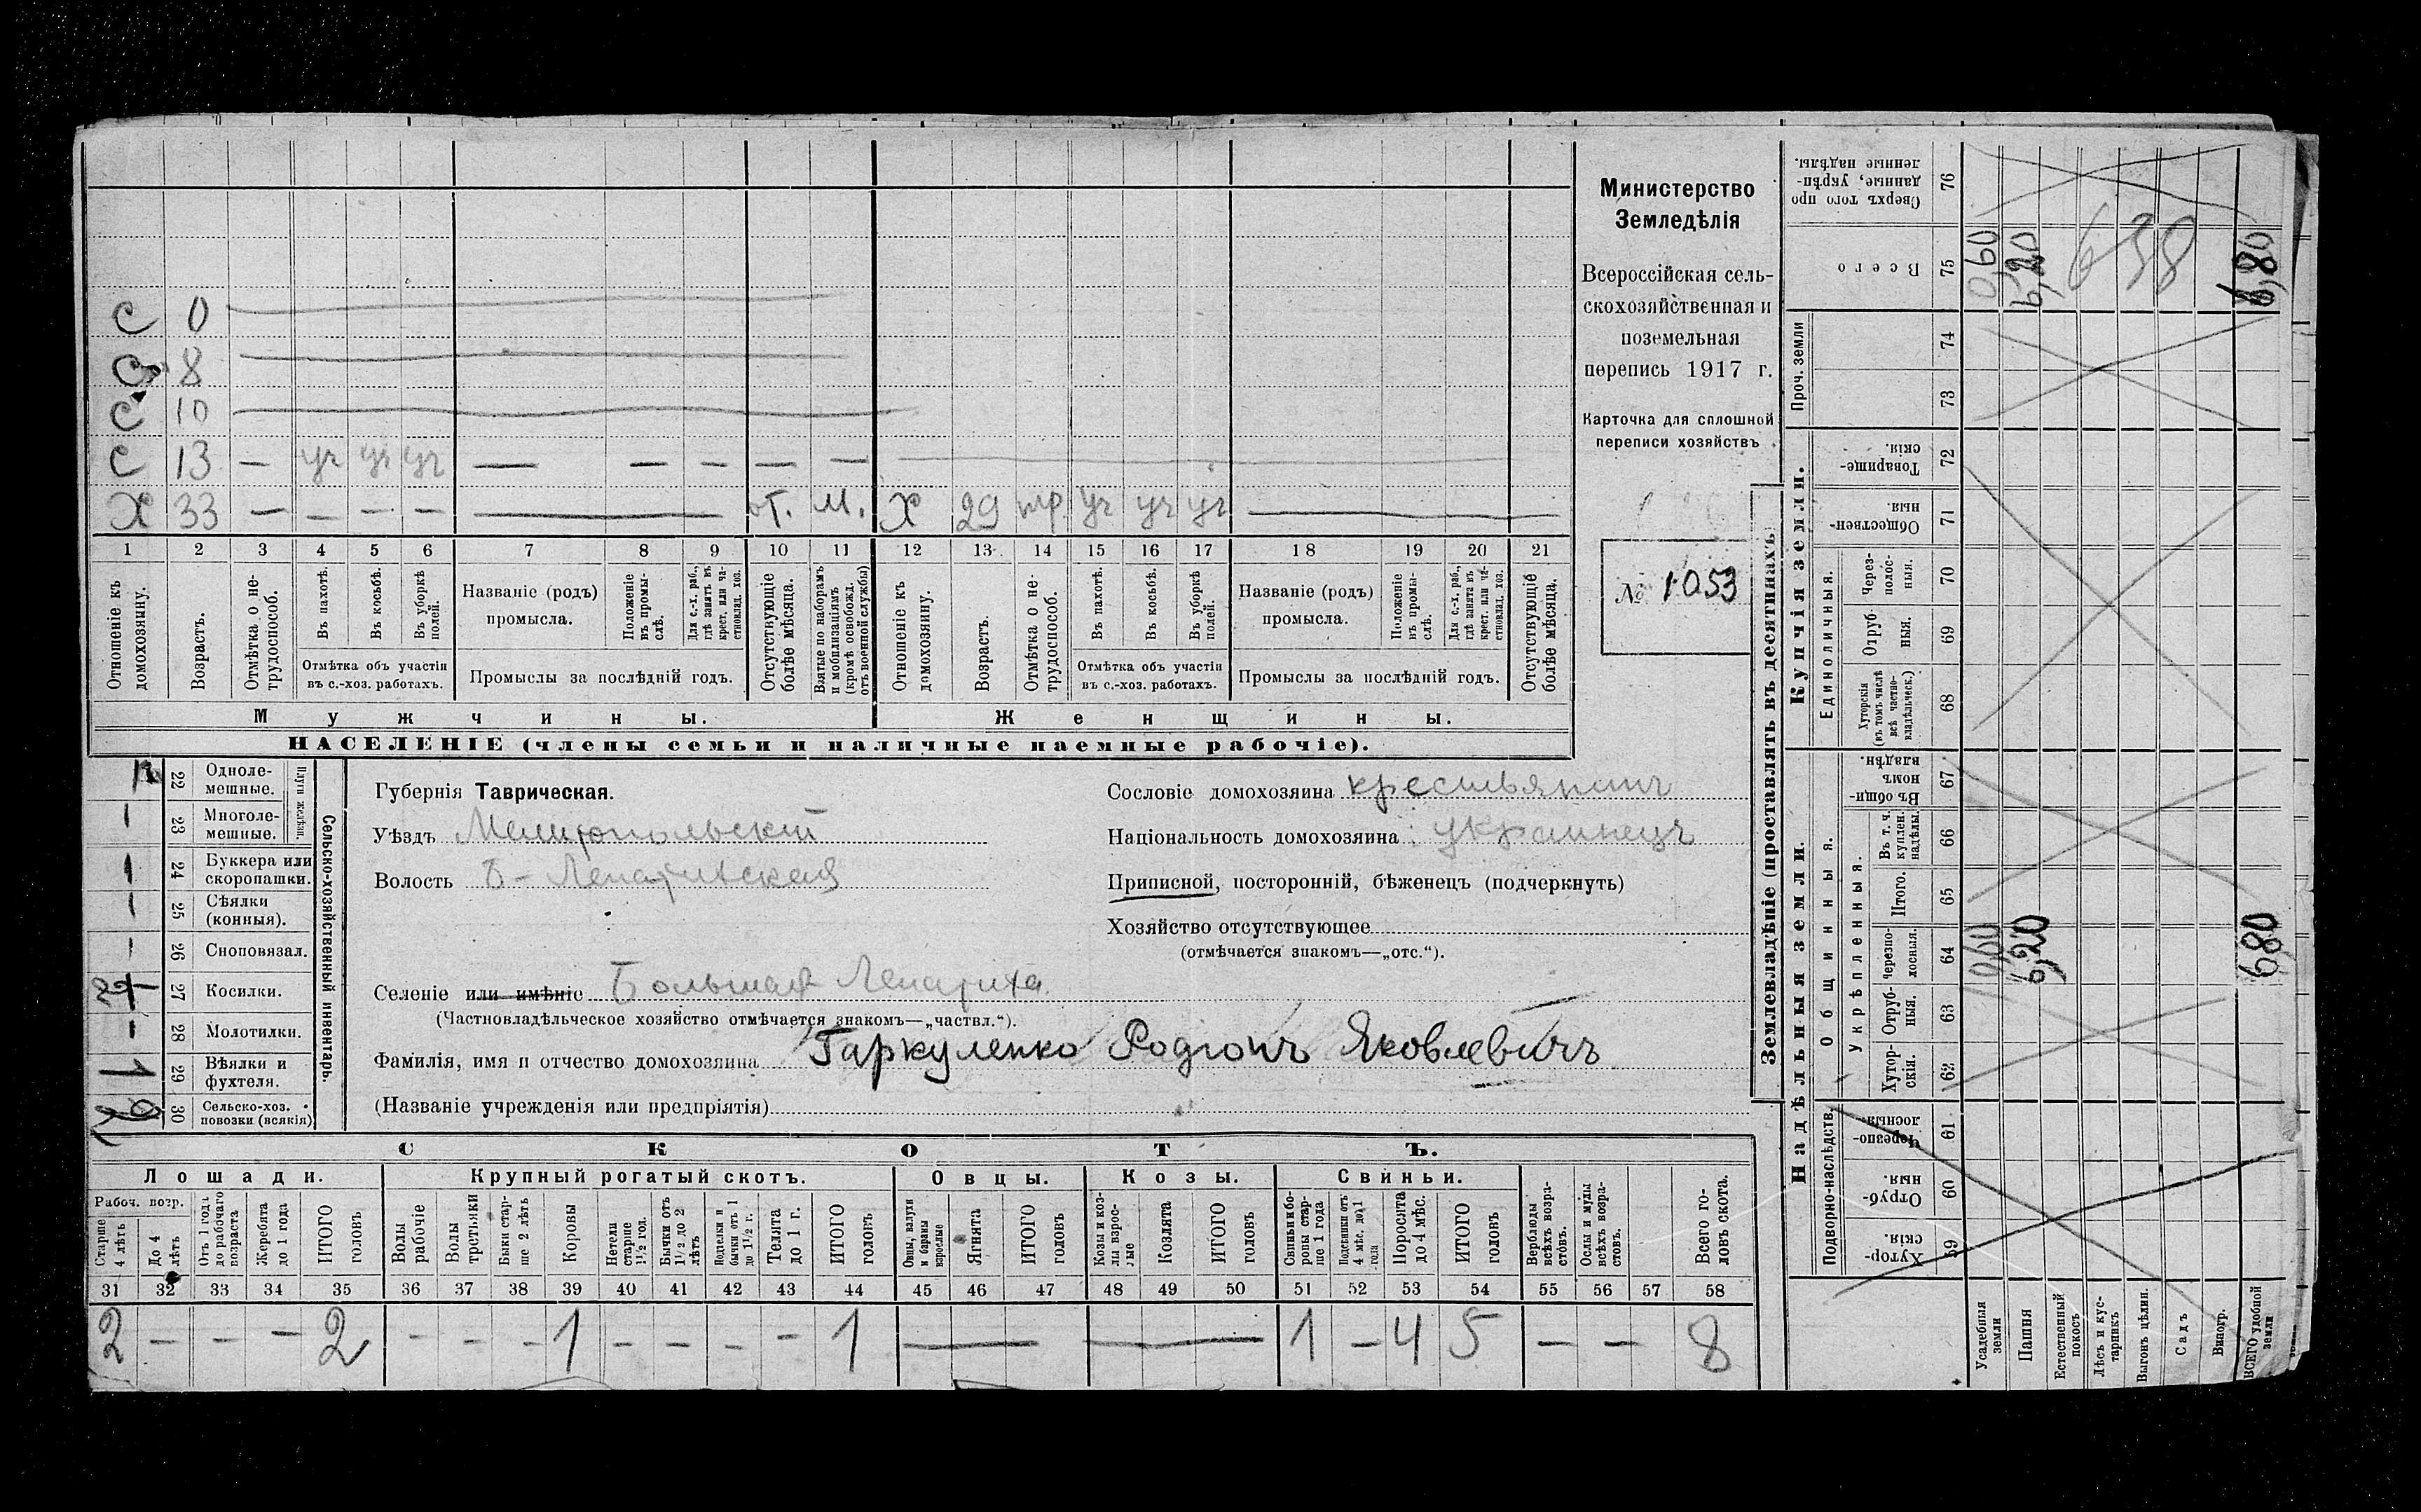 С 0
С 8
С 10
С 13 — уч уч уч — — — — —
Х 33 — — — — — от. м. Х 29 тр. уч уч уч —
1 2 3 4 5 6 7 8 9 10 11 12 13 14 15 16 17 18 19 20 21
Отношеніе къ домохозяину.
Возрастъ.
Отмѣтка о не-трудоспособ.
Въ пахотѣ.
Въ косьбѣ.
Въ уборкѣ полей.
Отмѣтка объ участіи въ с.-хоз. работахъ.
Названіе (родъ) промысла.
Положеніе въ промы-слѣ.
Для с.-х. раб., гдѣ занятъ въ крест. или ча-стновлад. хоз.
Промыслы за послѣдній годъ.
Отсутствующіе болѣе мѣсяца.
Взятые по наборамъ и мобилизаціямъ (кромѣ освобожд. отъ военной службы)
Отношеніе къ домохозяину.
Возрастъ.
Отмѣтка о не-трудоспособ.
Въ пахотѣ.
Въ косьбѣ.
Въ уборкѣ полей.
Отмѣтка объ участіи въ с.-хоз. работахъ.
Названіе (родъ) промысла.
Положеніе въ промы-слѣ.
Для с.-х. раб., гдѣ занята въ крест. или ча-стновлад. хоз.
Промыслы за послѣдній годъ.
Отсутствующіе болѣе мѣсяца.
Мужчины.
Женщины.
НАСЕЛЕНІЕ (члены семьи и наличные наемные рабочіе).
Министерство
Земледѣлія
Всероссійская сель-
скохозяйственная и
поземельная
перепись 1917 г.
Карточка для сплошной
переписи хозяйствъ
№ 1053
Сельско-хозяйственный инвентарь.
Плуги желѣзн.
22 Одноле-мешные.
23 Многоле-мешные.
24 Буккера или скоропашки.
25 Сѣялки (конныя).
26 Сноповязал.
27 Косилки.
28 Молотилки.
1 29 Вѣялки и фухтеля.
30 Сельско-хоз. повозки (всякія)
Губернія Таврическая.
Уѣздъ Мелитопольскій
Волость Б-Лепатихская
Селеніе или имѣніе Большая Лепатиха
(Частновладѣльческое хозяйство отмѣчается знакомъ—„частвл.“).
Фамилія, имя и отчество домохозяина Гаркуленко Родіонъ Яковлевичъ
(Названіе учрежденія или предпріятія)
Сословіе домохозяина крестьянинъ
Національность домохозяина украинецъ
Приписной, посторонній, бѣженецъ (подчеркнуть)
Хозяйство отсутствующее
(отмѣчается знакомъ—„отс.“).
СКОТЪ.
Лошади.
Крупный рогатый скотъ.
Овцы.
Козы.
Свиньи.
Рабоч. возр.
Старше 4 лѣтъ
До 4 лѣтъ
Отъ 1 года до рабочаго возраста
Жеребята до 1 года
ИТОГО головъ
Волы рабочіе
Волы третьяки
Быки стар-ше 2 лѣтъ
Коровы
Нетели старше 1½ год.
Бычки отъ 1½ до 2 лѣтъ
Подтелки и бычки отъ 1 до 1½ г.
Телята до 1 г.
ИТОГО головъ
Овцы, валухи и бараны взрослые
Ягнята
ИТОГО головъ
Козы и коз-лы взрос-лые
Козлята
ИТОГО головъ
Свиньи и бо-ровы стар-ше 1 года
Подсвинки отъ 4 мѣс. до 1 года
Поросята до 4 мѣс.
ИТОГО головъ
Верблюды всѣхъ возра-стовъ.
Ослы и мулы всѣхъ возра-стовъ.
Всего го-ловъ скота.
31 32 33 34 35 36 37 38 39 40 41 42 43 44 45 46 47 48 49 50 51 52 53 54 55 56 57 58
2 — — — 2 — — — 1 — — — — 1 — — 1 — 4 5 — — 8
Землевладѣніе (проставлять въ десятинахъ)
Надѣльныя земли.
Купчія земли.
Проч. земли
Подворно-наслѣдств.
Общинныя.
Укрѣпленныя.
Единоличныя.
Хутор-скія. 59
Отруб-ныя. 60
Черезпо-лосныя. 61
Хутор-скія. 62
Отруб-ныя. 63
Черезпо-лосныя. 64
Итого. 65
Въ т. ч. куплен. надѣлы. 66
Въ общи-номъ владѣн. 67
Хуторскія (въ томъ числѣ всѣ частно-владѣльческ.) 68
Отруб-ныя. 69
Через-полос-ныя. 70
Обществен-ныя. 71
Товарище-скія. 72
73
74
Всего 75
Сверхъ того про-данные, укрѣп-ленные надѣлы. 76
Усадебныя земли 0,60 0,60
Пашня 6,20 6,20
Естественный покосъ
Лѣсъ и кус-тарникъ
Выгонъ цѣлин.
Садъ
Виногр.
ВСЕГО удобной земли 6,80 6,80
638